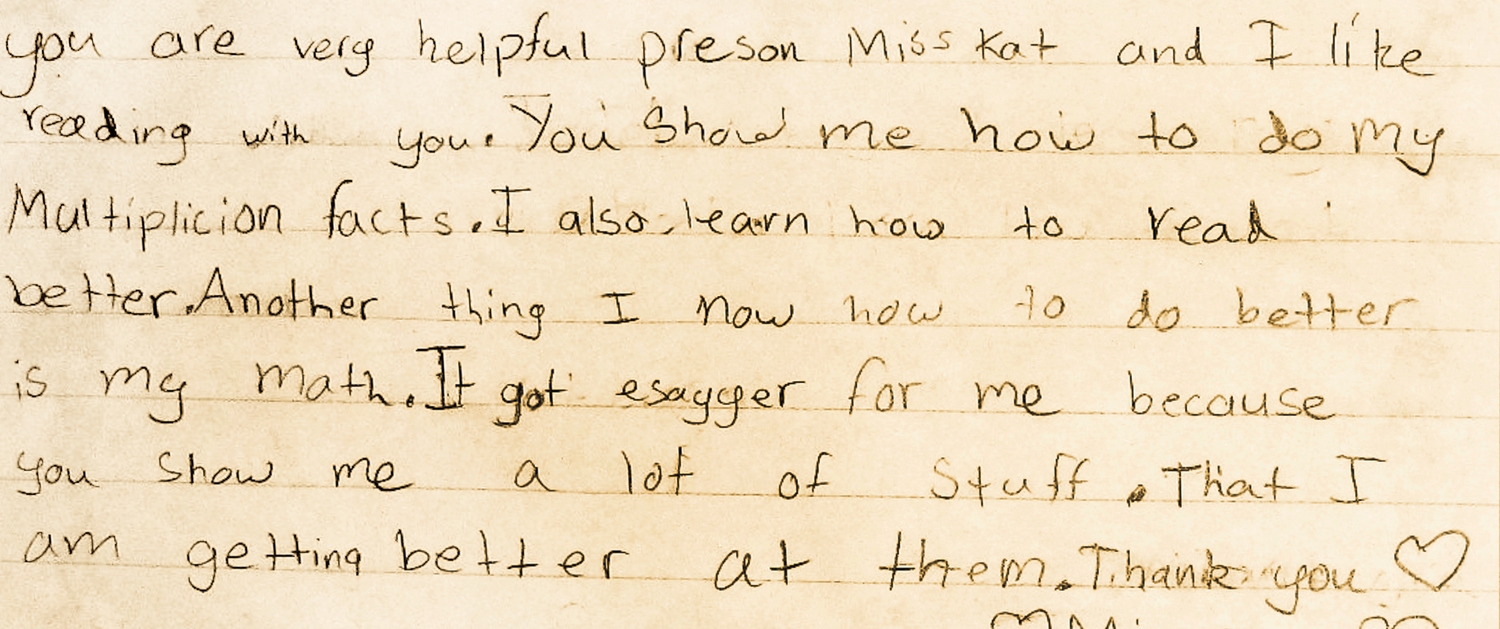 you are very helpful preson Miss Kat and I like
reading with you. You show me how to do my
Multiplicion facts. I also learn how to read
better. Another thing I now how to do better
is my math. It got esayger for me because
you show me a lot of stuff. That I
am getting better at them. Thank you ♡